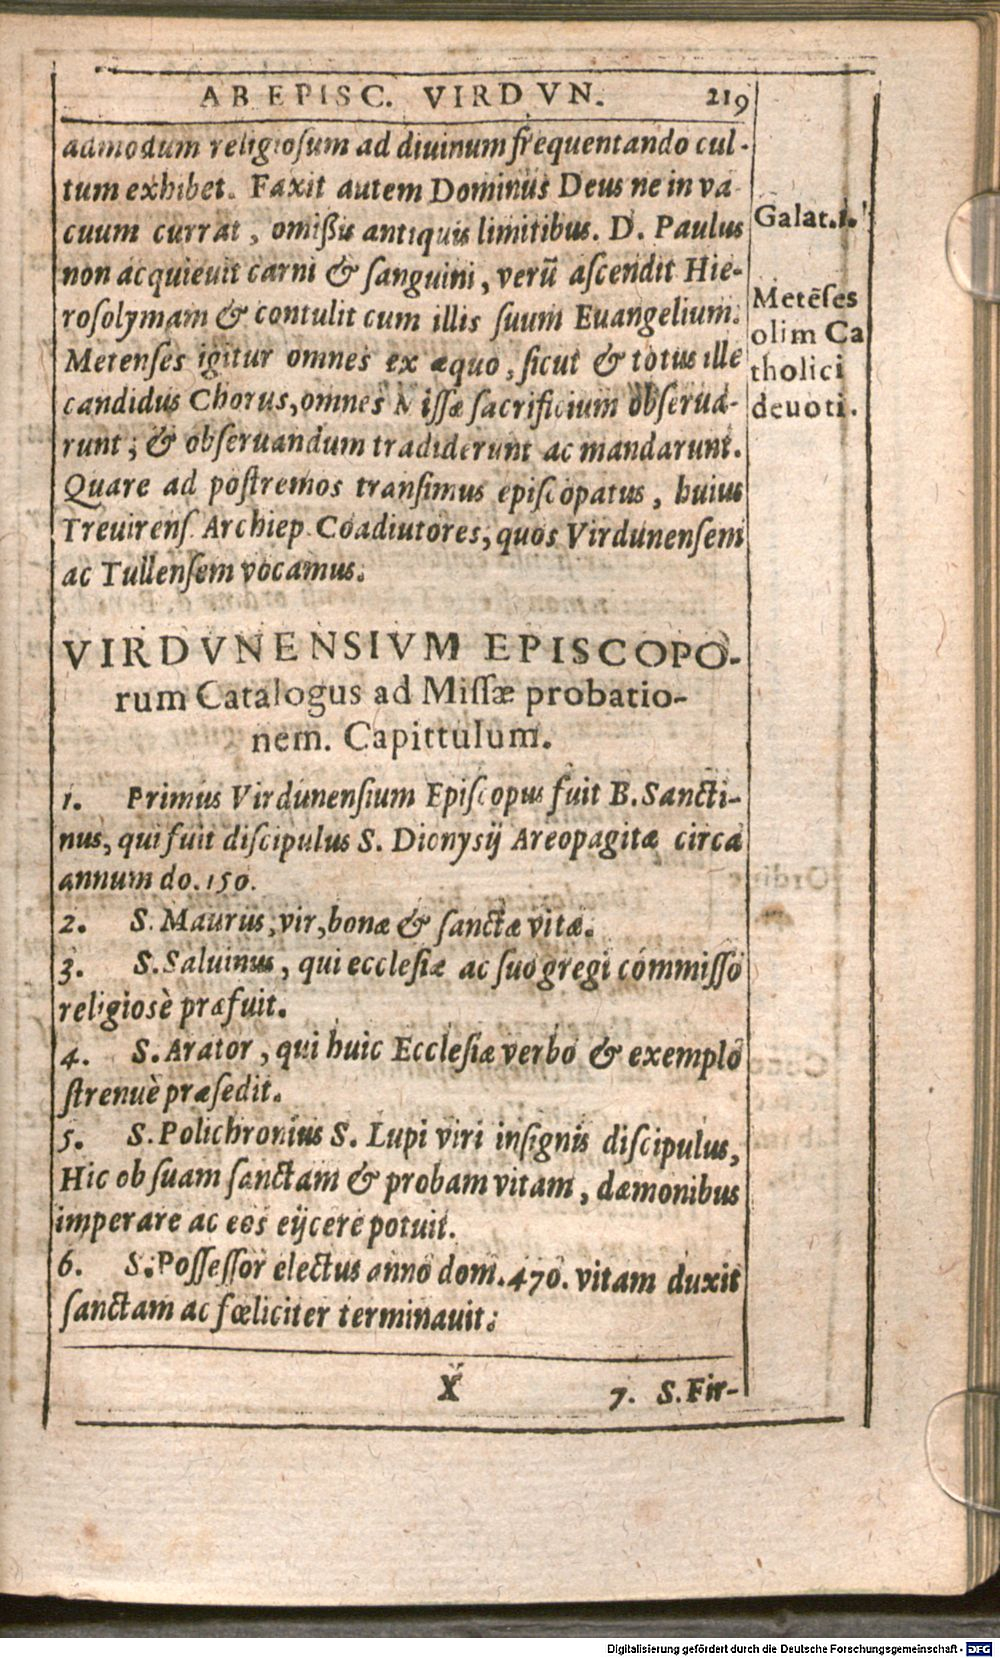 AB EPISC. VIRDVN. 219
admodum religiosum ad diuinum frequentando cul-
tum exhibet. Faxit autem Dominus Deus ne in va
cuum currat, omißis antiquis limitibus. D. Paulus
non acquieuit carni & sanguini, verũ ascendit Hie-
rosolymam & contulit cum illis suum Euangelium.
Metenses igitur omnes ex æquo, sicut & totus ille
candidus Chorus, omnes Missæ sacrificium obserua-
runt; & obseruandum tradiderunt ac mandarunt.
Quare ad postremos transimus episcopatus, huius
Treuirens. Archiep. Coadiutores, quos Virdunensem
ac Tullensem vocamus.
Galat. 1.
Metẽses
olim Ca
tholici
deuoti.
VIRDVNENSIVM EPISCOPO-
rum Catalogus ad Missæ probatio-
nem. Capittulum.
1. Primus Virdunensium Episcopus fuit B. Sancti-
nus, qui fuit discipulus S. Dionysij Areopagitæ circa
annum do. 150.
2. S. Maurus, vir, bonæ & sanctæ vitæ.
3. S. Saluinus, qui ecclesiæ ac suo gregi commisso
religiosè præfuit.
4. S. Arator, qui huic Ecclesiæ verbo & exemplo
strenuè præsedit.
5. S. Polichronius S. Lupi viri insignis discipulus,
Hic ob suam sanctam & probam vitam, dæmonibus
imperare ac eos eijcere potuit.
6. S. Possessor electus anno dom. 470. vitam duxit
sanctam ac fœliciter terminauit.
X 7. S. Fir-
Digitalisierung gefördert durch die Deutsche Forschungsgemeinschaft - DFG